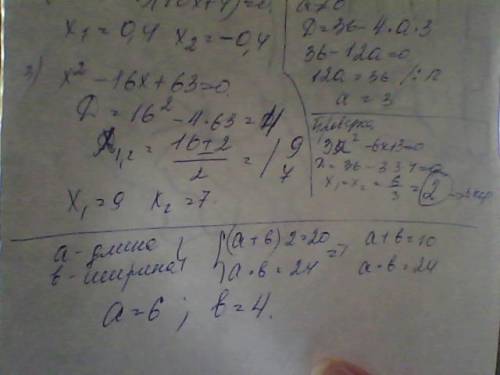 x₁ = 0,4  x₂ = -0,4
3) x² - 16x + 63 = 0
D = 16² - 4·63 = 4
x₁,₂ = (16 ± 2)/2 = 9
7
x₁ = 9  x₂ = 7
a ≠ 0
D = 36 - 4·a·3
36 - 12a = 0
12a = 36
a = 3
Проверка
3x² - 6x + 3 = 0
x₁ = x₂ = 6/3 = 2
a - длина
b - ширина
(a + b) 2 = 20 => a + b = 10
a · b = 24  a · b = 24
a = 6 ; b = 4.